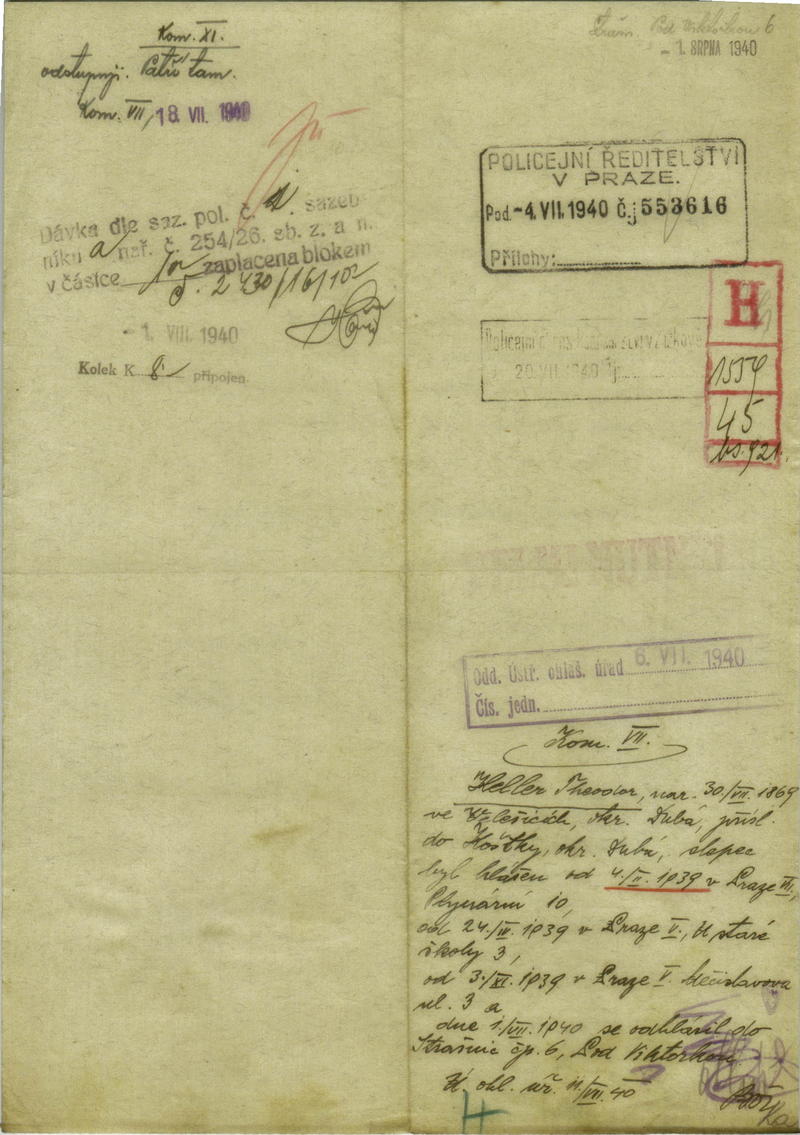 Kom. XI.
odstupuji. Patří tam.
Kom. VII, 18. VII. 1940
Dávka dle saz. pol. č. 1. sazeb
níku a nař. č. 254/26. sb. z. a n.
v částce zaplacena blokem
č. 2430/16/102
- 1. VIII. 1940
Kolek K 8.- připojen.
Straš. Pod Viktorkou 6
- 1. SRPNA 1940
POLICEJNÍ ŘEDITELSTVÍ
V PRAZE.
Pod. -4. VII. 1940 Č.j 553616
Přílohy:
H
1559
45
20 VII 1940
Odd. Ústř. ohlaš. úřad 6. VII. 1940
Čís. jedn.
Kom. VII.
Heller Theodor, nar. 30./VII. 1869
ve okr. Dubá, přísl.
do Hoštky, okr. Dubá, slepec
byl hlášen od 4./II. 1939 v Praze
Plynární 10,
od 24./IV. 1939 v Praze V., U staré
školy 3,
od 3./XI. 1939 v Praze V. Mečislavova
ul. 3 a
dne 1./VII. 1940 se odhlásil do
Strašnic čp. 6, Pod Viktorkou.
Ú. ohl. úř. 11/VII. 40
H